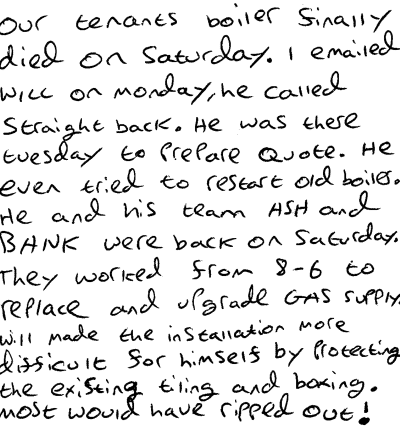 Our tenants boiler finally
died on Saturday. I emailed
Will on monday, he called
Straight back. He was there
tuesday to prepare Quote. He
even tried to restart old boiler.
He and his team ASH and
BANK were back on Saturday.
They worked from 8-6 to
replace and upgrade GAS supply.
Will made the installation more
difficult for himself by Protecting
the existing tiling and boxing.
most would have ripped out!